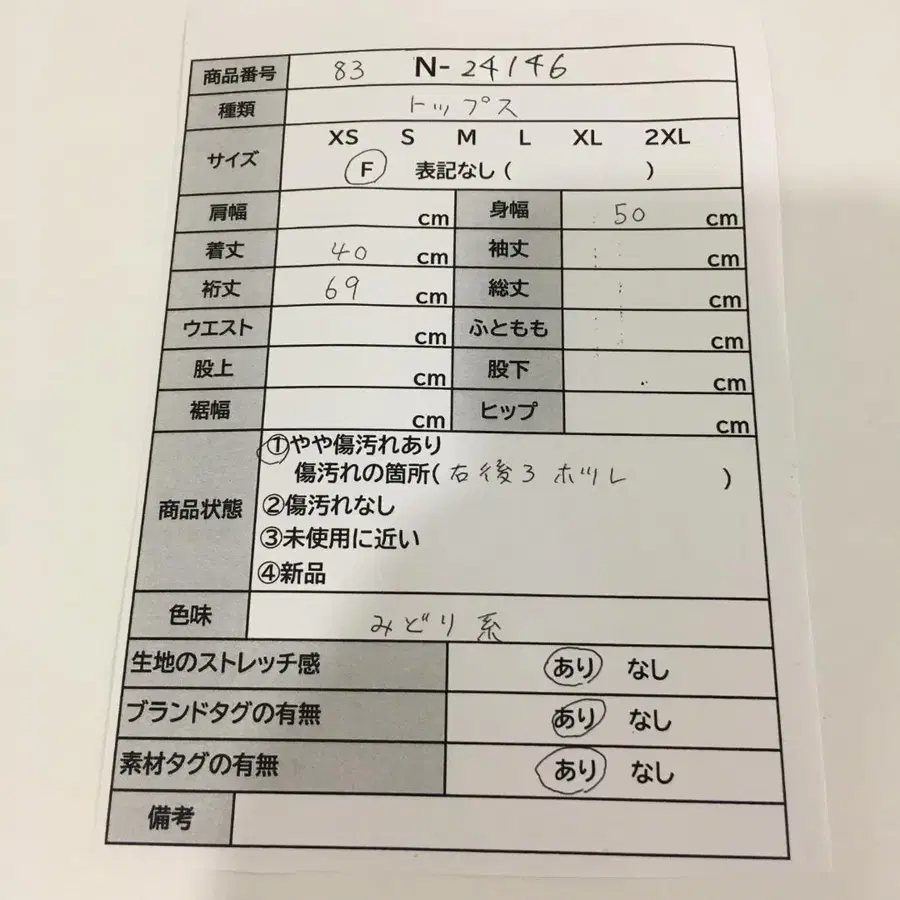 商品番号 83 N-24146
種類 トップス
サイズ XS S M L XL 2XL
F 表記なし ( )
肩幅 cm 身幅 50 cm
着丈 40 cm 袖丈 cm
裄丈 69 cm 総丈 cm
ウエスト cm ふともも cm
股上 cm 股下 cm
裾幅 cm ヒップ cm
商品状態 ①やや傷汚れあり
傷汚れの箇所( 右後ろホツレ )
②傷汚れなし
③未使用に近い
④新品
色味 みどり系
生地のストレッチ感 あり なし
ブランドタグの有無 あり なし
素材タグの有無 あり なし
備考